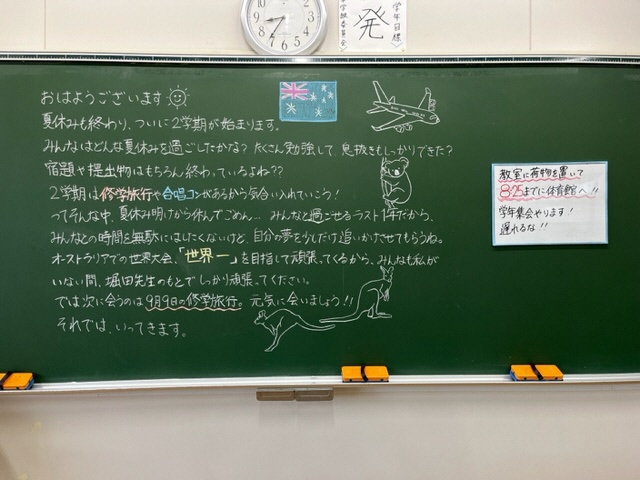 発
学年目標
学級委員会
おはようございます
夏休みも終わり、ついに2学期が始まります。
みんなはどんな夏休みを過ごしたかな? たくさん勉強して、息抜きもしっかりできた?
宿題や提出物はもちろん終わっているよね??
2学期は修学旅行や合唱コンがあるから気合い入れていこう!
ってそんな中、夏休み明けから休んでごめん… みんなと過ごせるラスト1年だから、
みんなとの時間を無駄にはしたくないけど、自分の夢を少しだけ追いかけさせてもらうね。
オーストラリアでの世界大会、「世界一」を目指して頑張ってくるから、みんなも私が
いない間、堀田先生のもとでしっかり頑張ってください。
では次に会うのは9月9日の修学旅行。元気に会いましょう!!
それでは、いってきます。
教室に荷物を置いて
8:25までに体育館へ!!
学年集会やります!
遅れるな!!